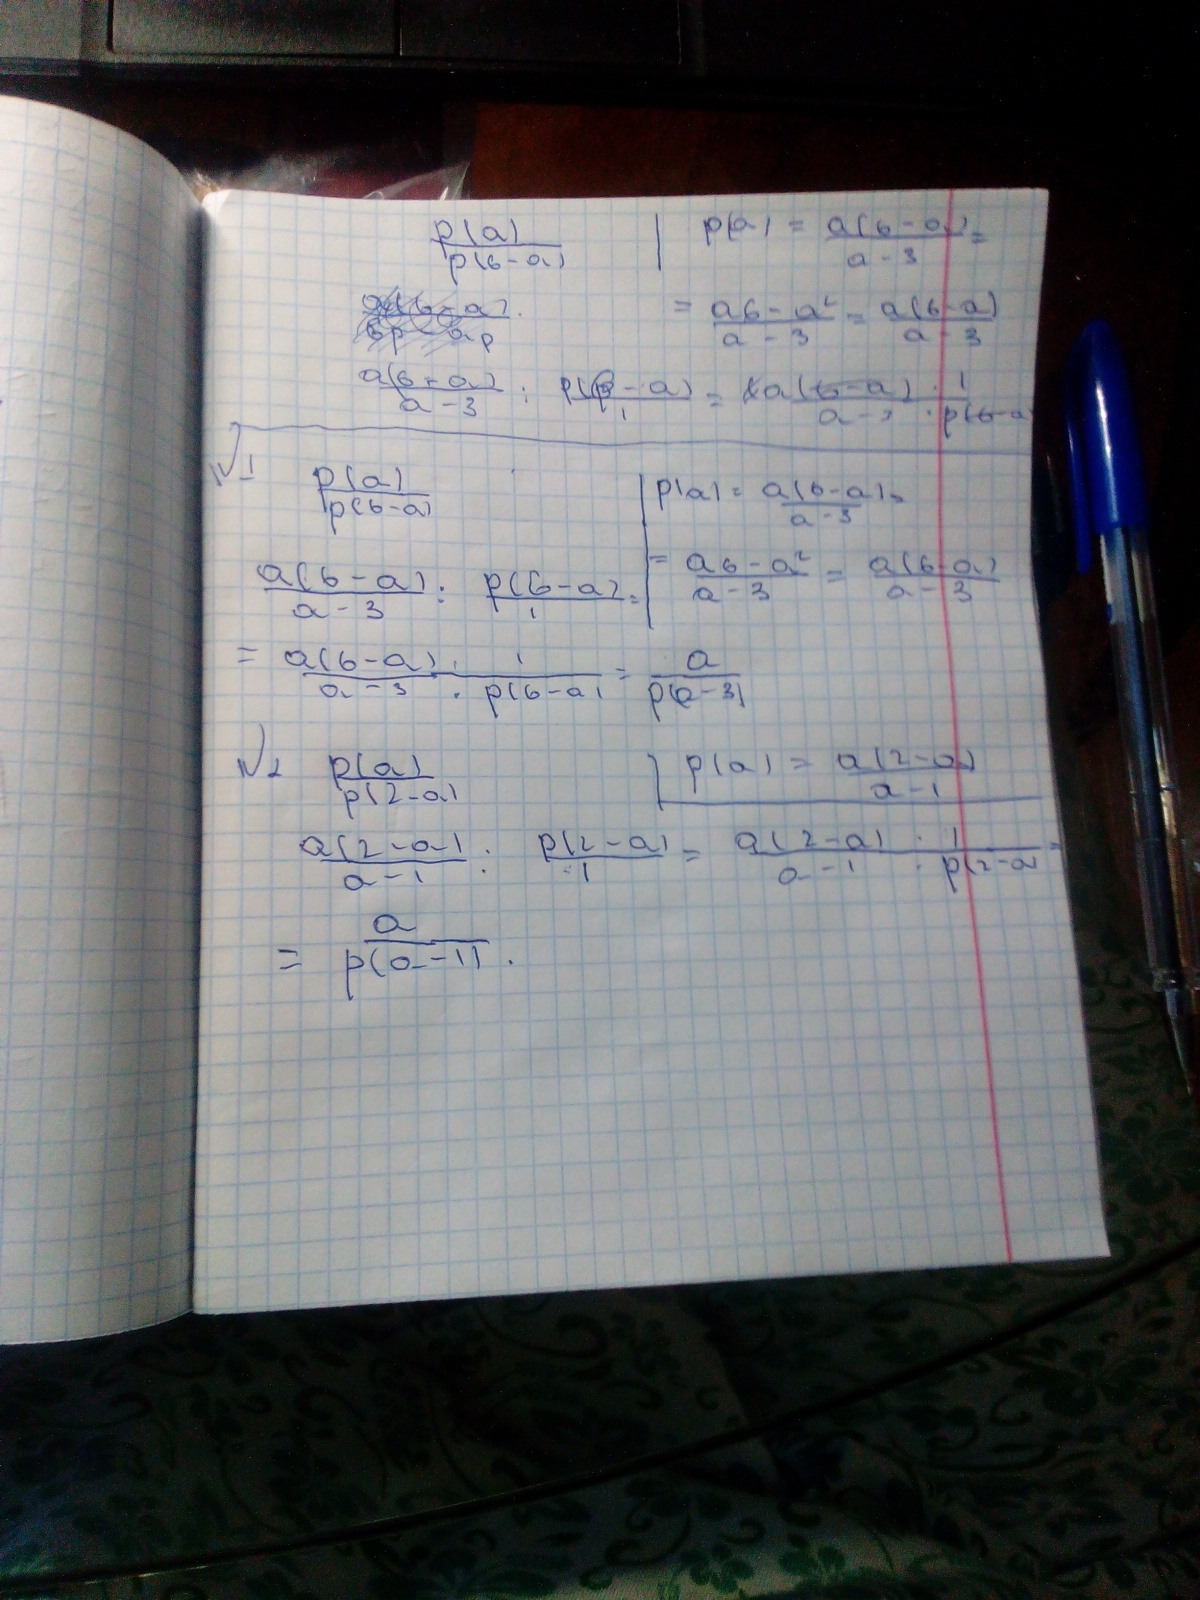 p(a)/p(6-a) | p(a) = a(6-a)/a-3 =
= a6-a²/a-3 = a(6-a)/a-3
a(6-a)/a-3 : p(6-a)/1 = a(6-a)·1/a-3·p(6-a
№1 p(a)/p(6-a) | p(a) = a(6-a)/a-3 =
= a6-a²/a-3 = a(6-a)/a-3
a(6-a)/a-3 : p(6-a)/1 =
= a(6-a)·1/a-3·p(6-a) = a/p(a-3)
№2 p(a)/p(2-a) | p(a) = a(2-a)/a-1
a(2-a)/a-1 : p(2-a)/1 = a(2-a)·1/a-1·p(2-a) =
= a/p(a-1).